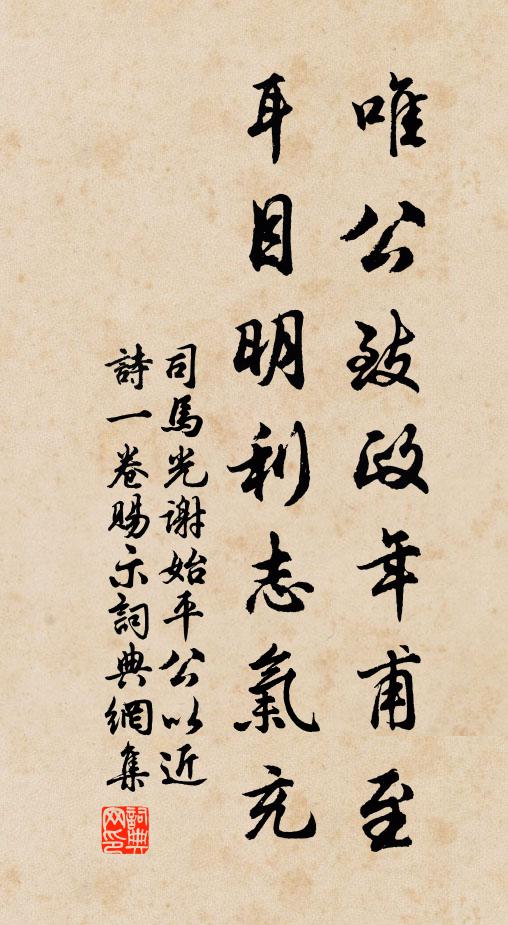 唯公致政年甫至
耳目明利志氣充
司馬光謝始平公以近
詩一卷賜示詞典網集
詞典网印